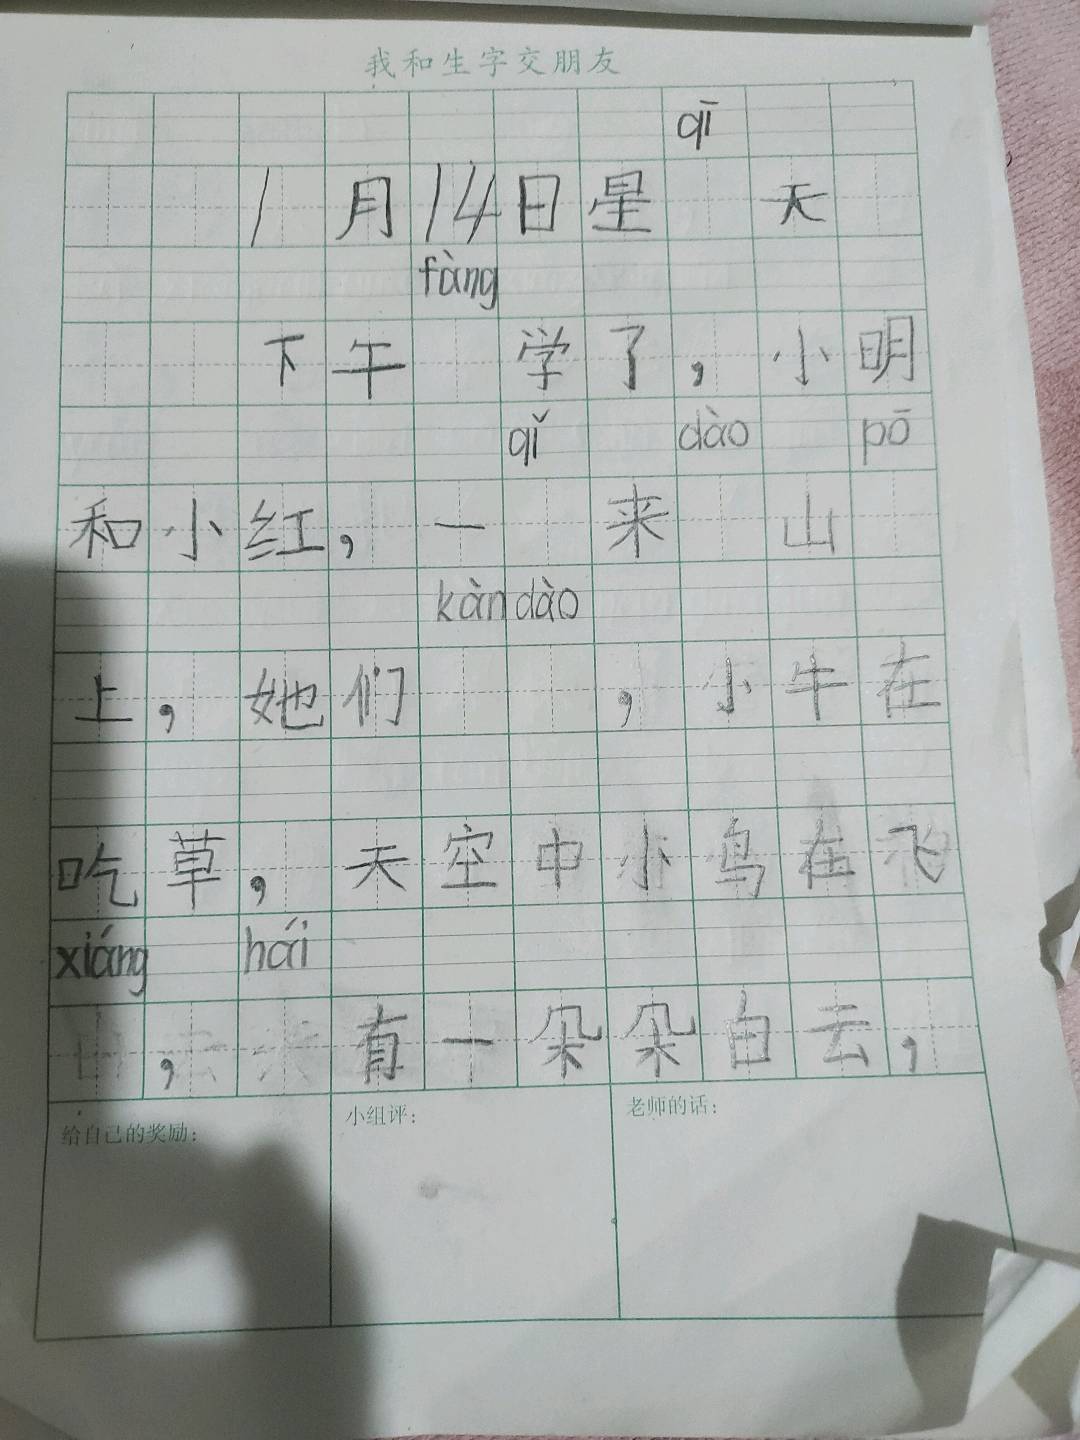 我和生字交朋友
qī
1月14日星 天
fàng
下午 学了，小明
qǐ dào pō
和小红，一 来 山
kàn dào
上，她们 ，小牛在
吃草，天空中小鸟在飞
xiáng hái
， 有一朵朵白云，
给自己的奖励： 小组评： 老师的话：